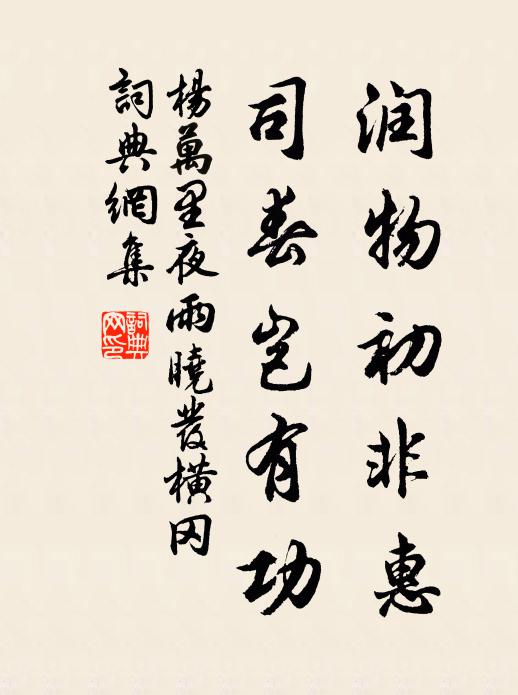 润物初非惠
司春岂有功
楊萬里夜雨曉发橫冈
詞典網集
詞典
网印